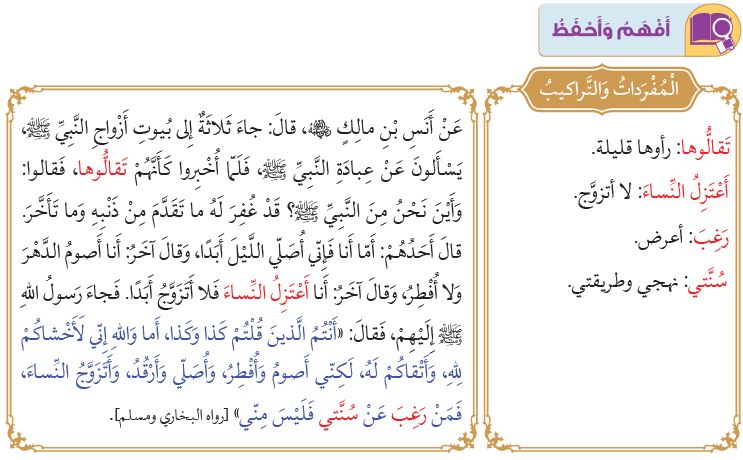 أَفْهَمُ وَأَحْفَظُ
الْمُفْرَداتُ وَالتَّراكيبُ
تَقالُّوها: رأوها قليلة.
أَعْتَزِلُ النِّساءَ: لا أتزوَّج.
رَغِبَ: أعرض.
سُنَّتي: نهجي وطريقتي.
عَنْ أَنَسِ بْنِ مالِكٍ رضي الله عنه، قالَ: جاءَ ثَلاثَةٌ إِلى بُيوتِ أَزْواجِ النَّبِيِّ ﷺ،
يَسْأَلونَ عَنْ عِبادَةِ النَّبِيِّ ﷺ، فَلَمّا أُخْبِروا كَأَنَّهُمْ تَقالُّوها، فَقالوا:
وَأَيْنَ نَحْنُ مِنَ النَّبِيِّ ﷺ؟ قَدْ غُفِرَ لَهُ ما تَقَدَّمَ مِنْ ذَنْبِهِ وَما تَأَخَّرَ.
قالَ أَحَدُهُمْ: أَمّا أَنا فَإِنّي أُصَلّي اللَّيْلَ أَبَدًا، وَقالَ آخَرُ: أَنا أَصومُ الدَّهْرَ
وَلا أُفْطِرُ، وَقالَ آخَرُ: أَنا أَعْتَزِلُ النِّساءَ فَلا أَتَزَوَّجُ أَبَدًا. فَجاءَ رَسولُ اللهِ
ﷺ إِلَيْهِمْ، فَقالَ: «أَنْتُمُ الَّذينَ قُلْتُمْ كَذا وَكَذا، أَما وَاللهِ إِنّي لَأَخْشاكُمْ
لِلهِ، وَأَتْقاكُمْ لَهُ، لَكِنّي أَصومُ وَأُفْطِرُ، وَأُصَلّي وَأَرْقُدُ، وَأَتَزَوَّجُ النِّساءَ،
فَمَنْ رَغِبَ عَنْ سُنَّتي فَلَيْسَ مِنّي» [رواه البخاري ومسلم].